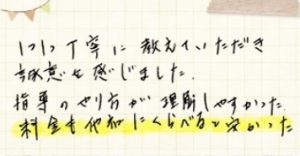 1つ1つ丁寧に教えていただき
誠意を感じました。
指導のやり方が理解しやすかった
料金も他社にくらべると安かった